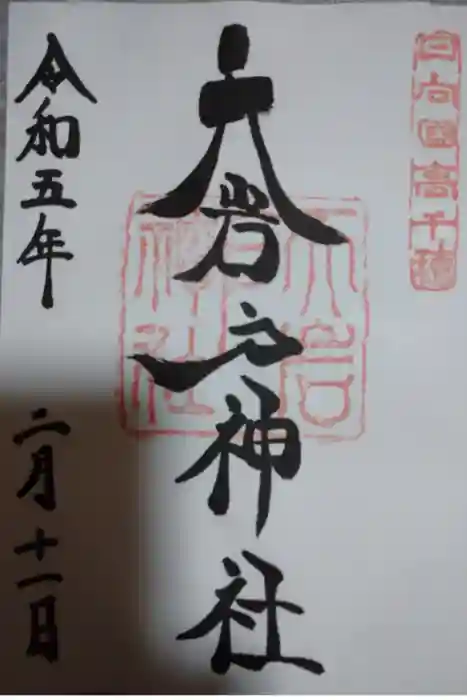 日向國高千穂
天岩戸神社
令和五年
二月十一日